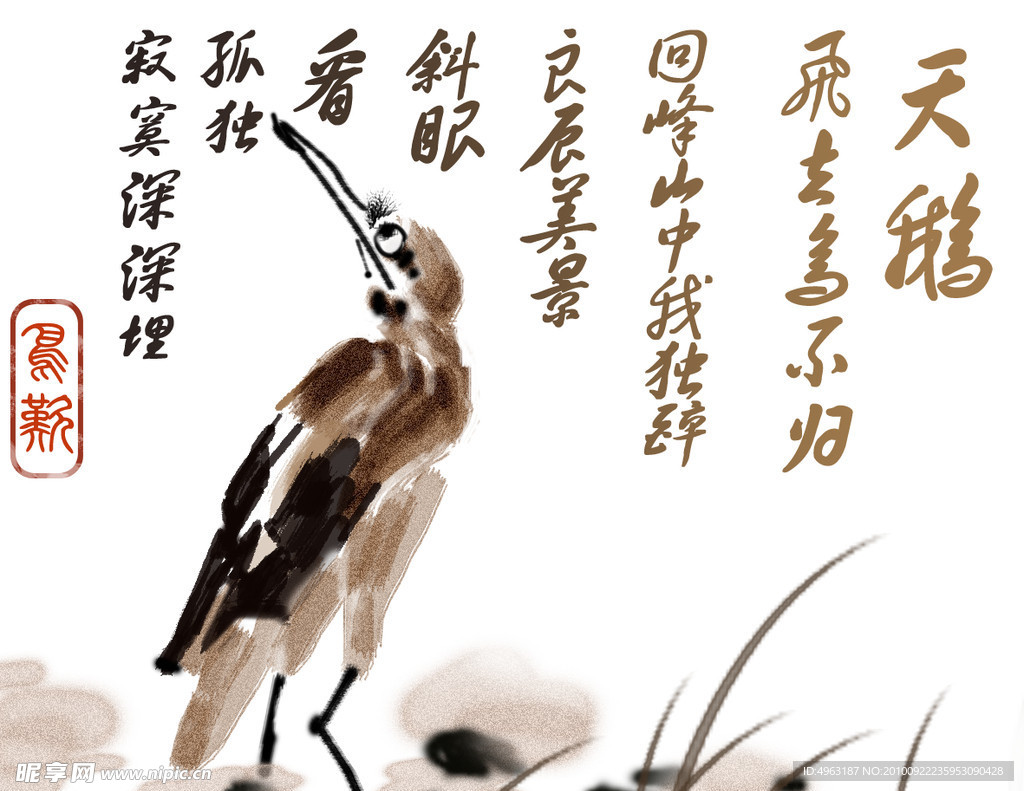 天鹅
飛去為不归
回峰山中我独醉
良辰美景
斜眼
看
孤独
寂寞深深埋
昵享网 www.nipic.cn
ID:4963187 NO:20100922235953090428